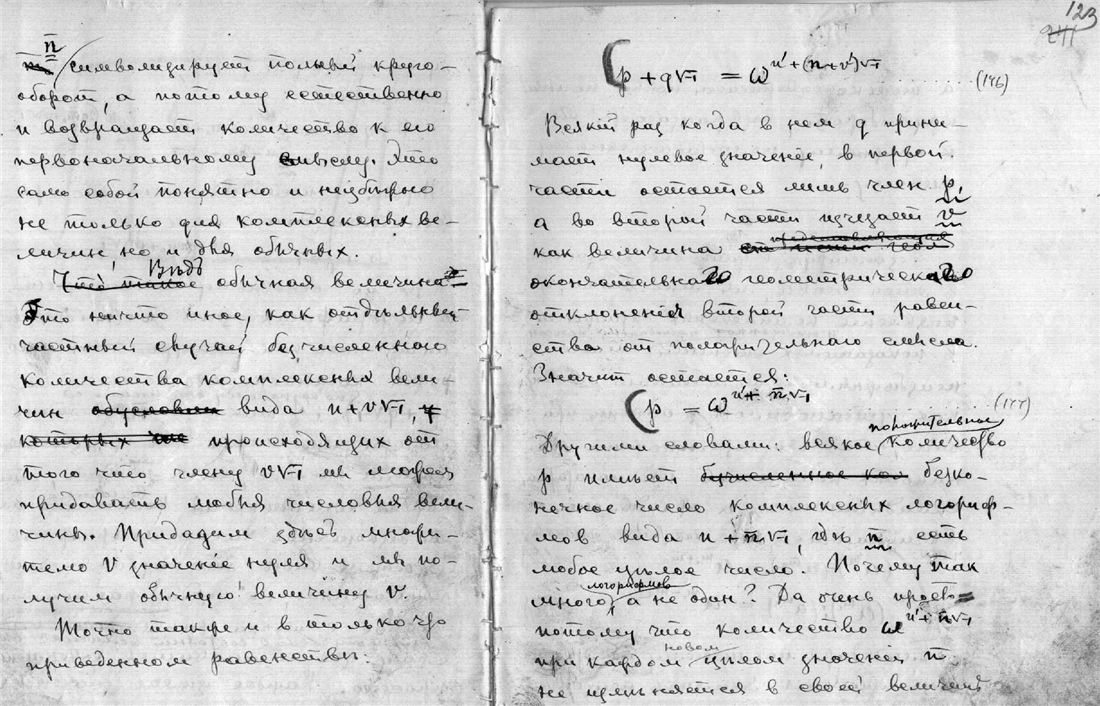 п
символизирует полный круго-
оборот, а потому естественно
и возвращает количество к его
первоначальному смыслу. Это
само собой понятно и неизбѣжно
не только для комплексных ве-
личин, но и для обычных.
Вѣдь обычная величина
это ничто иное, как отдѣльный
частный случай безчисленного
количества комплексных вели-
чин вида n+v√-1,
которых происходящих от
того что члену v√-1 мы можем
придавать любыя числовыя вели-
чины. Придадим здѣсь множи-
телю v значенiе нуля и мы по-
лучим обычную величину
Точно также и в только что
приведенном равенствѣ:
123
p + q√-1 = ω^n'+(п+v')√-1 ..... (176)
Всякiй раз когда в нем q прини-
мает нулевое значенiе, в первой
части остается лишь член p,
а во второй части изчезает v
как величина
окончательнаго геометрическаго
отклоненiя второй части равен-
ства от полярительнаго смысла.
Значит остается:
p = ω^n'+п√-1 ..... (177)
положительное
Другими словами: всякое количество
p имѣет безко-
нечное число комплексных логориф-
мов вида n+п√-1, гдѣ п есть
любое цѣлое число. Почему так
логорифмов
много, а не один? Да очень просто
потому что количество ω^n'+п√-1
новом
при каждом цѣлом значенiи п
не измѣняется в своей величинѣ